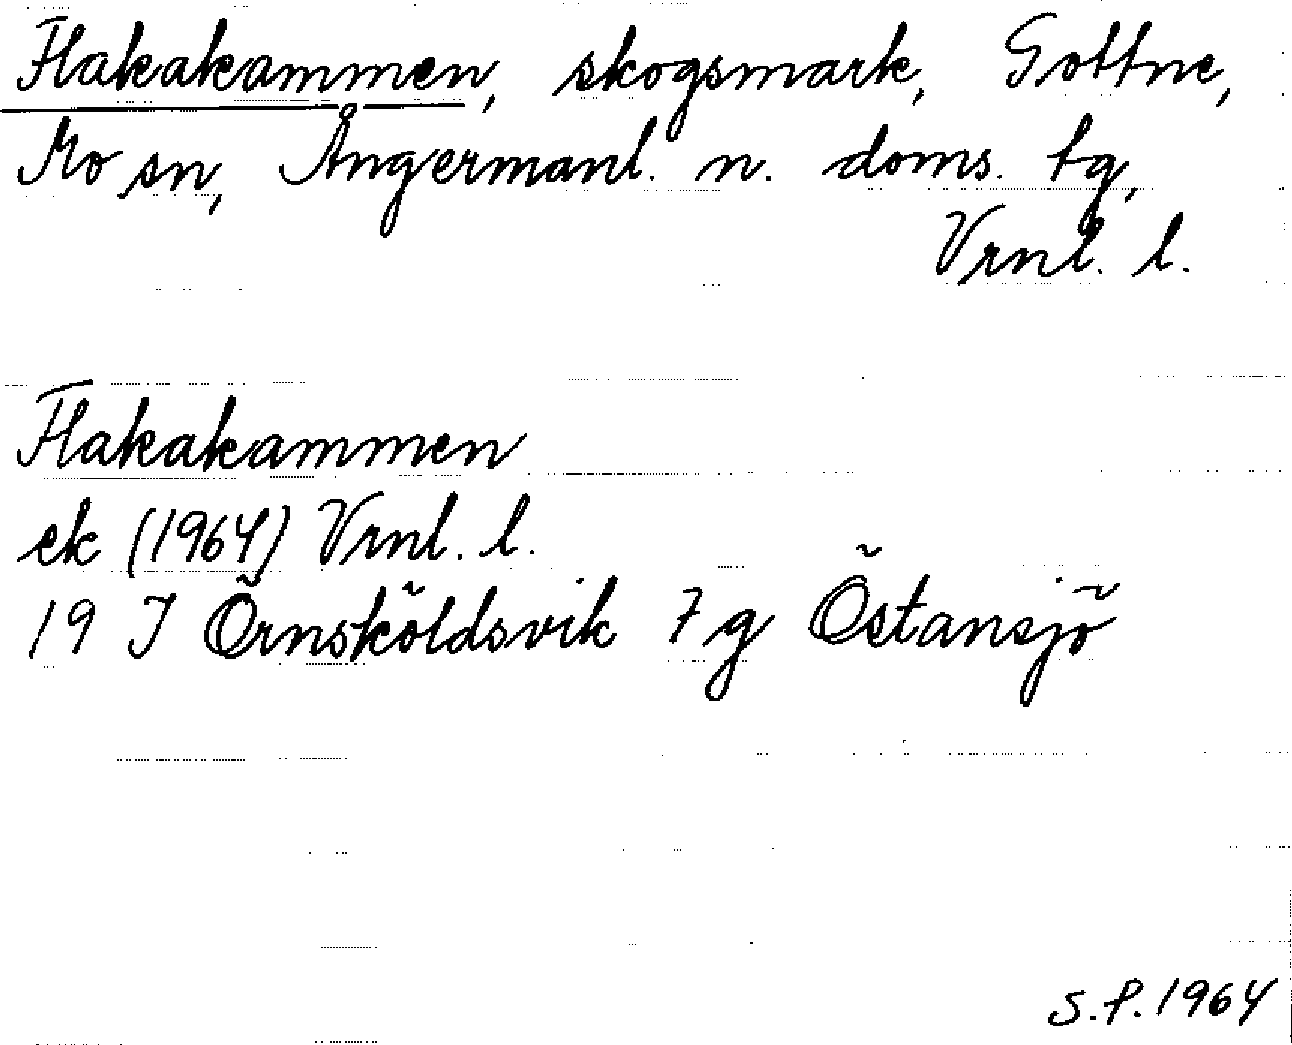 Flakakammen, skogsmark, Gottne,
Mo sn, Ångermanl. n. doms. tg,
Vrnl. l.
Flakakammen
ek (1964) Vrnl. l.
19 J Örnsköldsvik 7 g Östansjö
S.P. 1964